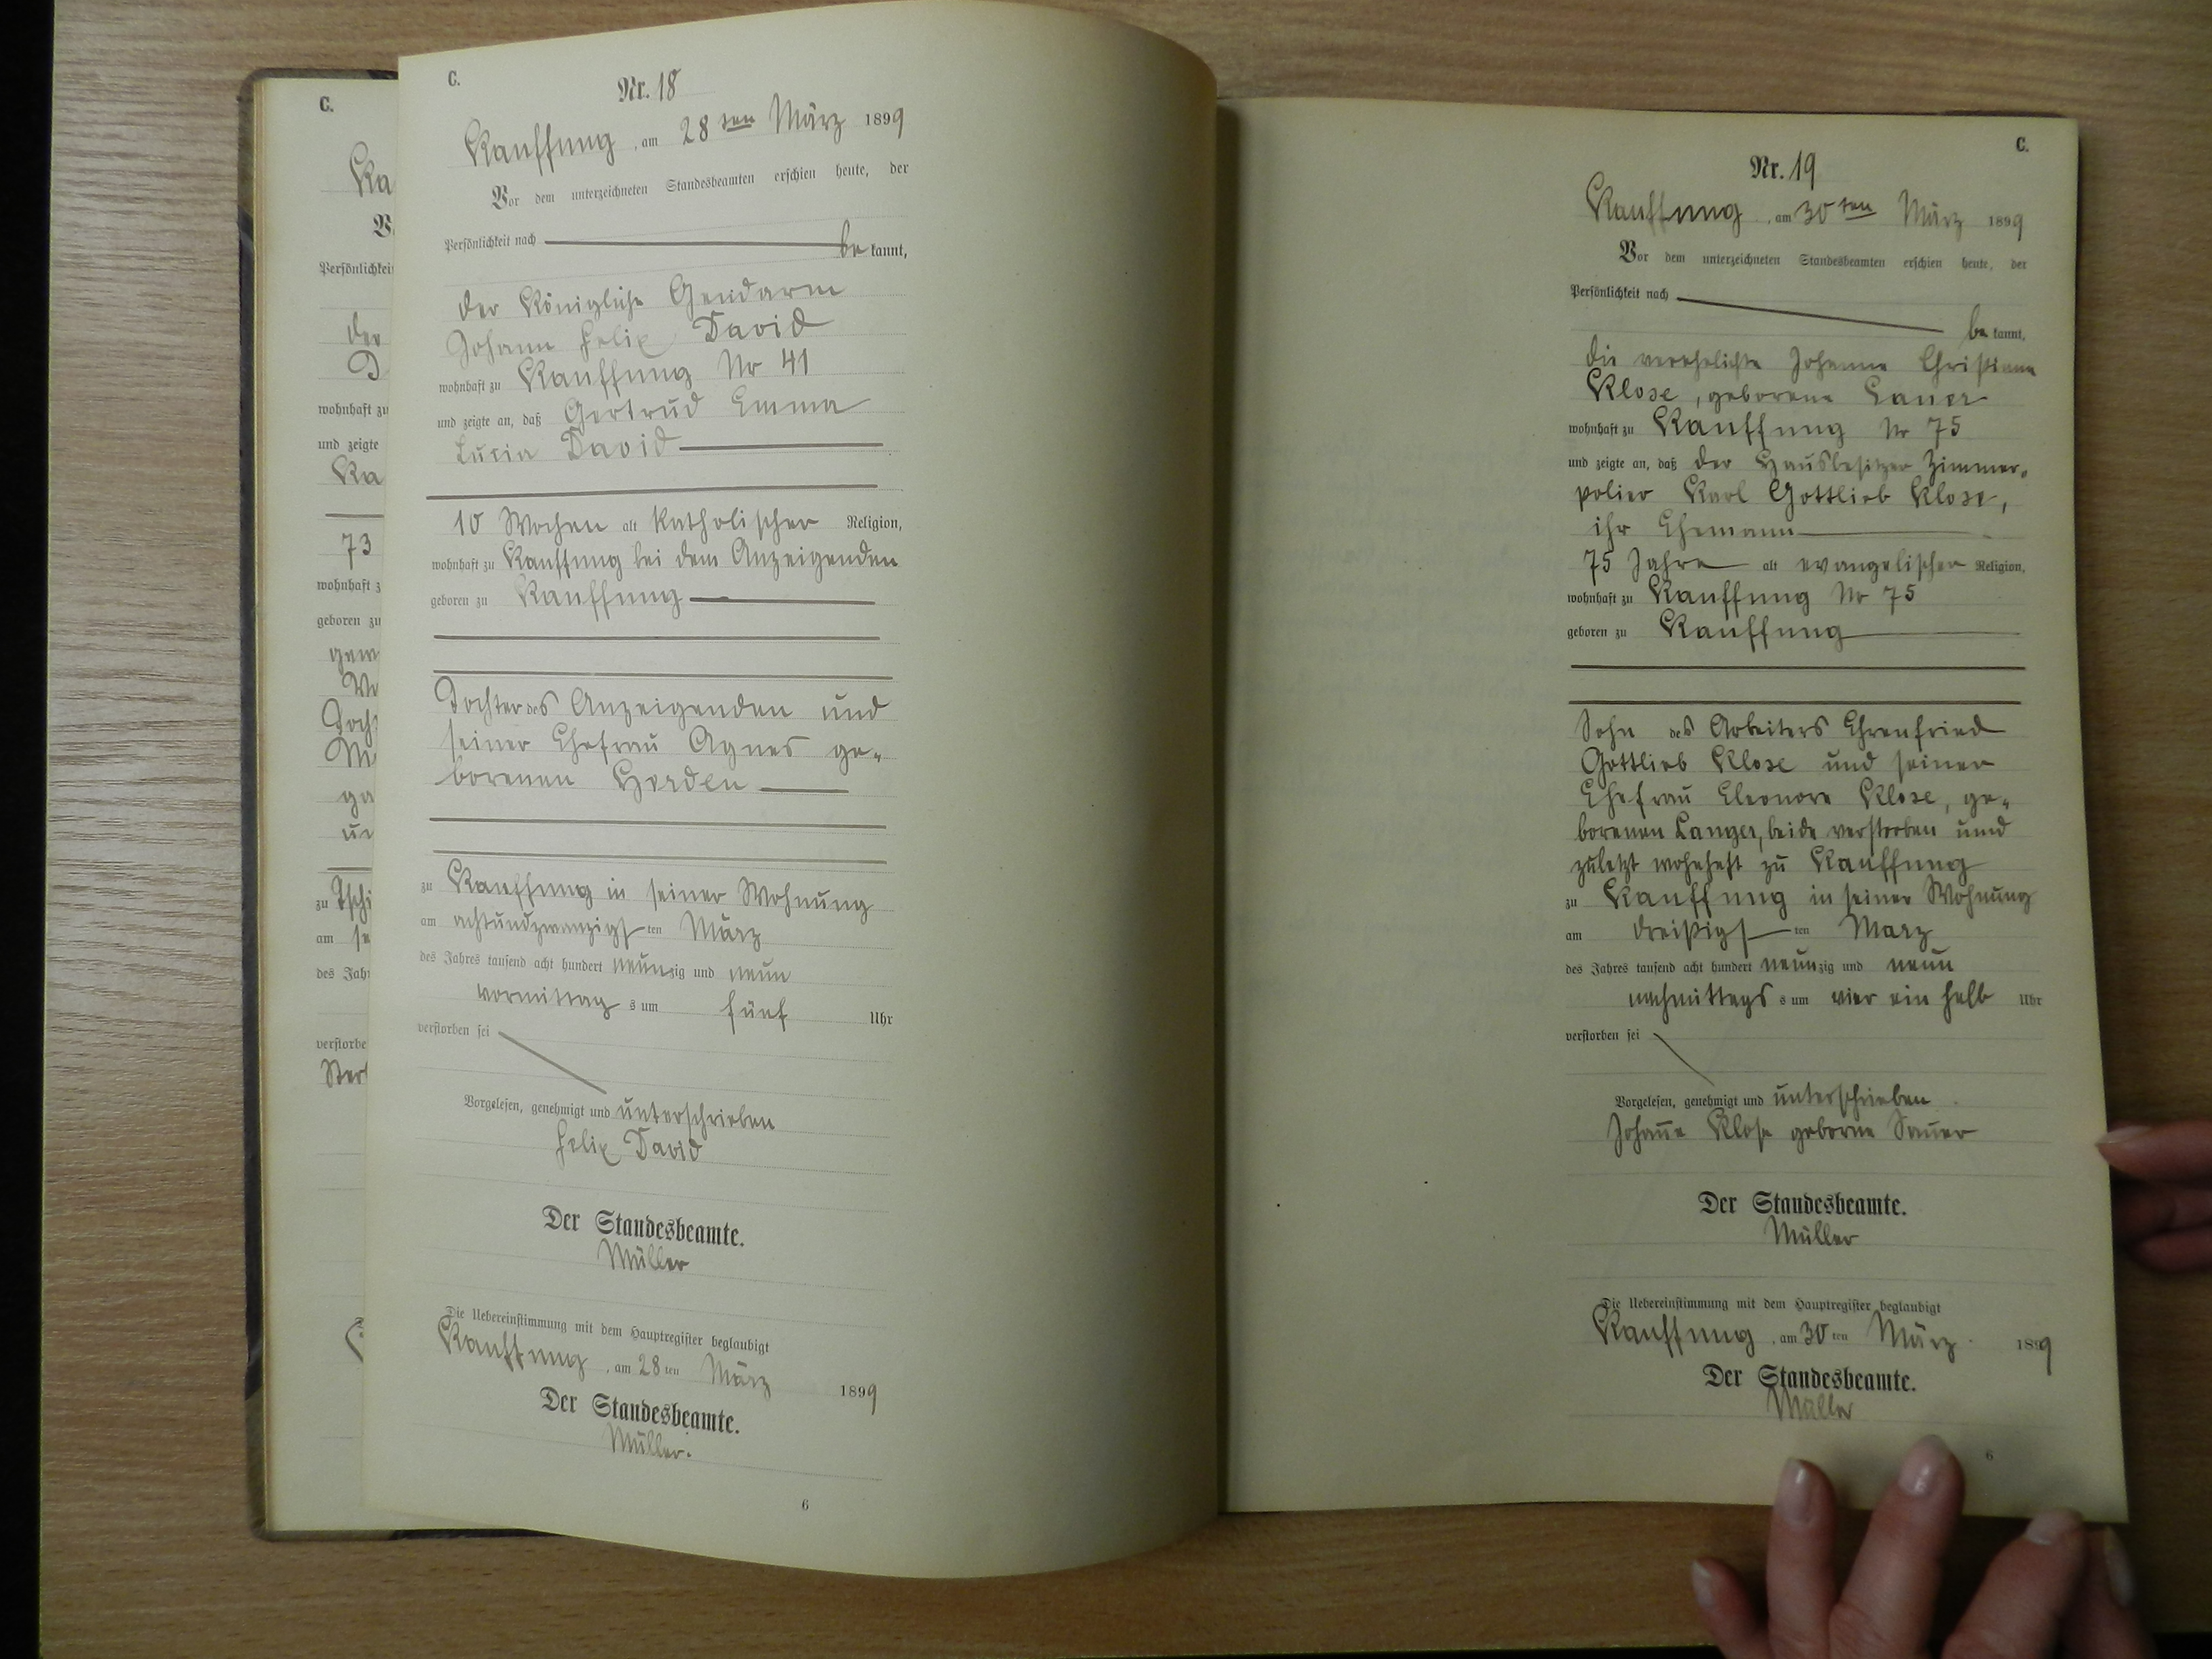 C.
Ka
V
Persönlichkei
der
D
wohnhaft zu
und zeigte
Ka
73
wohnhaft z
geboren zu
gew
We
Toch
Mi
ga
un
zu Tschi
am se
des Jah
verstorbe
Ster
C.
Nr. 18
Kauffung, am 28ten März 1899
Vor dem unterzeichneten Standesbeamten erschien heute, der
Persönlichkeit nach
be kannt,
der Königliche Gendarm
Johann Felix David
wohnhaft zu Kauffung Nr 41
und zeigte an, daß Gertrud Emma
Lucia David
10 Wochen alt katholischer Religion,
wohnhaft zu Kauffung bei dem Anzeigenden
geboren zu Kauffung
Tochter des Anzeigenden und
seiner Ehefrau Agnes ge-
borenen Herden
zu Kauffung in seiner Wohnung
am achtundzwanzigsten März
des Jahres tausend acht hundert neunzig und neun
vormittags um fünf Uhr
verstorben sei
Vorgelesen, genehmigt und unterschrieben
Felix David
Der Standesbeamte.
Müller
Die Uebereinstimmung mit dem Hauptregister beglaubigt
Kauffung, am 28ten März 1899
Der Standesbeamte.
Müller.
6
C.
Nr. 19
Kauffung, am 30ten März 1899
Vor dem unterzeichneten Standesbeamten erschien heute, der
Persönlichkeit nach
be kannt,
die verehelichte Johanne Christiane
Klose, geborene
wohnhaft zu Kauffung Nr 75
und zeigte an, daß der Hausbesitzer Zimmer-
polier Karl Gottlieb Klose,
ihr Ehemann
75 Jahre alt evangelischer Religion,
wohnhaft zu Kauffung Nr 75
geboren zu Kauffung
Sohn des Arbeiters Ehrenfried
Gottlieb Klose und seiner
Ehefrau Eleonore Klose, ge-
borenen Langer, beide verstorben und
zuletzt wohnhaft zu Kauffung
zu Kauffung in seiner Wohnung
am dreißigsten März
des Jahres tausend acht hundert neunzig und neun
nachmittags um vier ein halb Uhr
verstorben sei
Vorgelesen, genehmigt und unterschrieben
Johanne Klose geborne Sauer
Der Standesbeamte.
Müller
Die Uebereinstimmung mit dem Hauptregister beglaubigt
Kauffung, am 30ten März 1899
Der Standesbeamte.
Müller
6